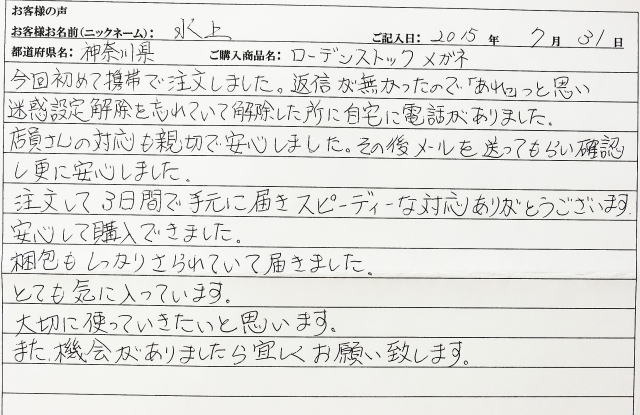 お客様の声
お客様お名前(ニックネーム): 水上 ご記入日: 2015 年 7 月 31 日
都道府県名: 神奈川県 ご購入商品名: ローデンストック メガネ
今回初めて携帯で注文しました。返信が無かったので「あれ」っと思い
迷惑設定解除を忘れていて解除した所に自宅に電話がありました。
店員さんの対応も親切で安心しました。その後メールを送ってもらい確認
し更に安心しました。
注文して3日間で手元に届きスピーディーな対応ありがとうございます。
安心して購入できました。
梱包もしっかりされていて届きました。
とても気に入っています。
大切に使っていきたいと思います。
また、機会がありましたら宜しくお願い致します。